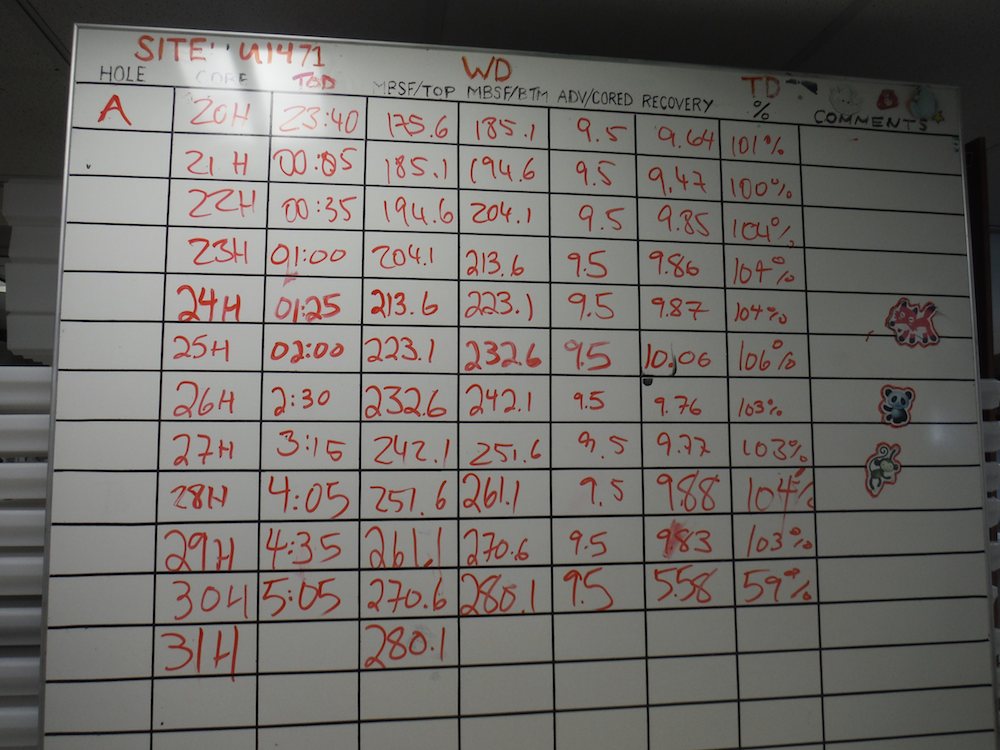 SITE: U1471
WD
TD
HOLE CORE TOD MBSF/TOP MBSF/BTM ADV/CORED RECOVERY % COMMENTS
A 20H 23:40 175.6 185.1 9.5 9.64 101%
21H 00:05 185.1 194.6 9.5 9.47 100%
22H 00:35 194.6 204.1 9.5 9.85 104%
23H 01:00 204.1 213.6 9.5 9.86 104%
24H 01:25 213.6 223.1 9.5 9.87 104%
25H 02:00 223.1 232.6 9.5 10.06 106%
26H 2:30 232.6 242.1 9.5 9.76 103%
27H 3:15 242.1 251.6 9.5 9.77 103%
28H 4:05 251.6 261.1 9.5 9.88 104%
29H 4:35 261.1 270.6 9.5 9.83 103%
30H 5:05 270.6 280.1 9.5 5.58 59%
31H 280.1